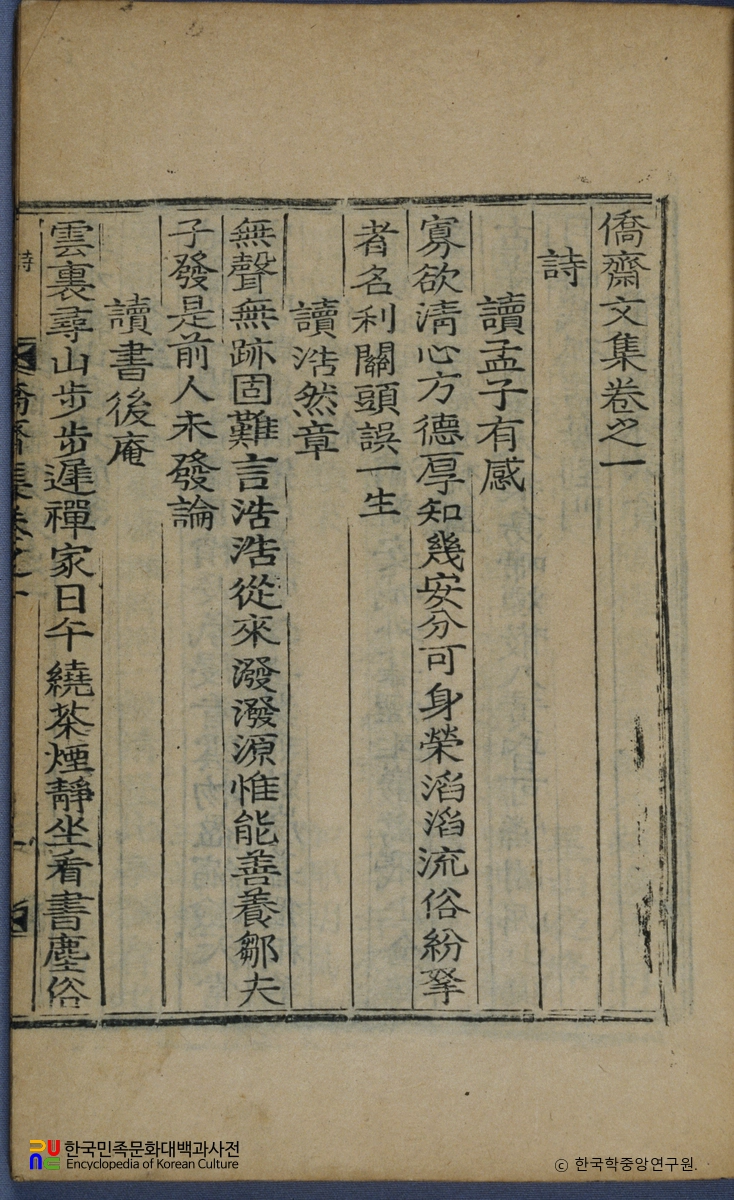 僑齋文集卷之一
詩
讀孟子有感
寡欲淸心方德厚知幾安分可身榮滔滔流俗紛拏
者名利關頭誤一生
讀浩然章
無聲無跡固難言浩浩從來潑潑源惟能善養鄒夫
子發是前人未發論
讀書後庵
雲裏尋山步步遲禪家日午繞茶煙靜坐看書塵俗
詩
僑齋集卷之一
한국민족문화대백과사전
Encyclopedia of Korean Culture
ⓒ 한국학중앙연구원